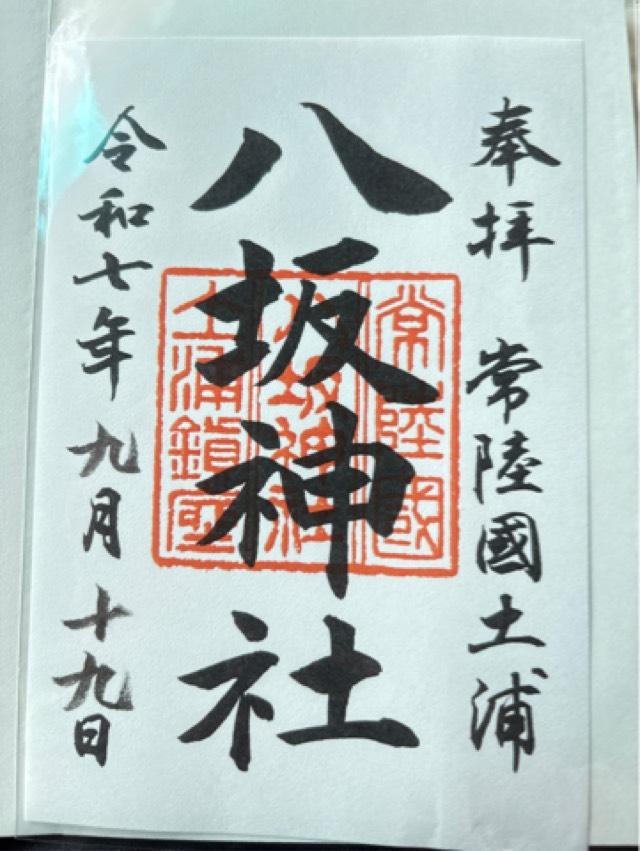 奉拝 常陸國土浦
八坂神社
常陸國
八坂神社
土浦鎮座
令和七年九月十九日